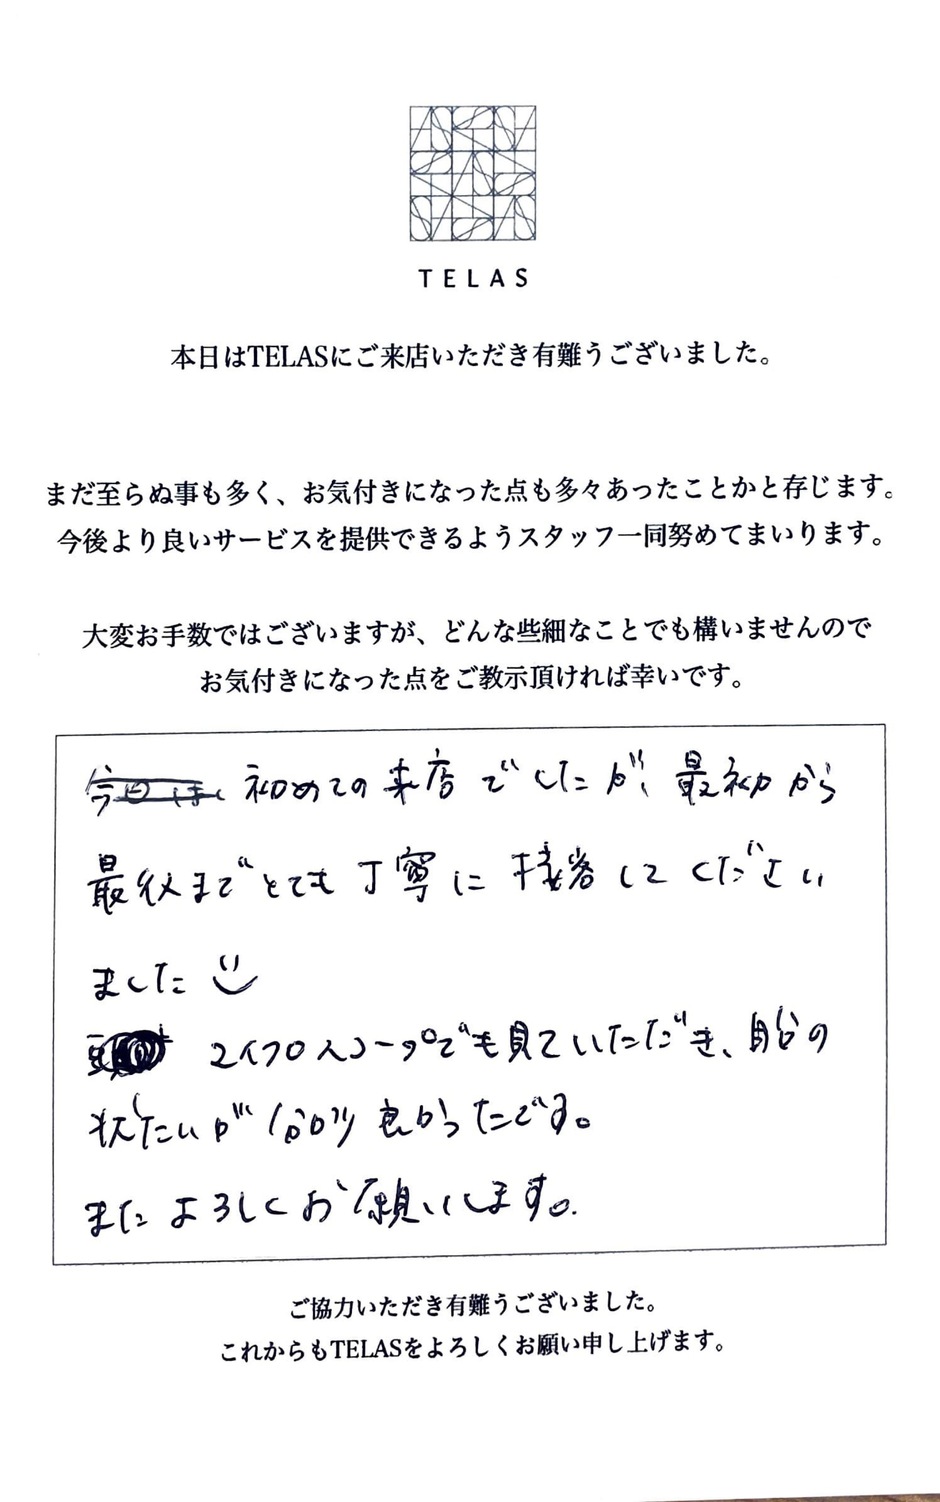 TELAS
本日はTELASにご来店いただき有難うございました。
まだ至らぬ事も多く、お気付きになった点も多々あったことかと存じます。
今後より良いサービスを提供できるようスタッフ一同努めてまいります。
大変お手数ではございますが、どんな些細なことでも構いませんので
お気付きになった点をご教示頂ければ幸いです。
今日は 初めての来店でしたが、最初から
最後までとても丁寧に接客してください
ました
マイクロスコープでも見ていただき、頭皮の
状たいが分かり良かったです。
またよろしくお願いします。
ご協力いただき有難うございました。
これからもTELASをよろしくお願い申し上げます。